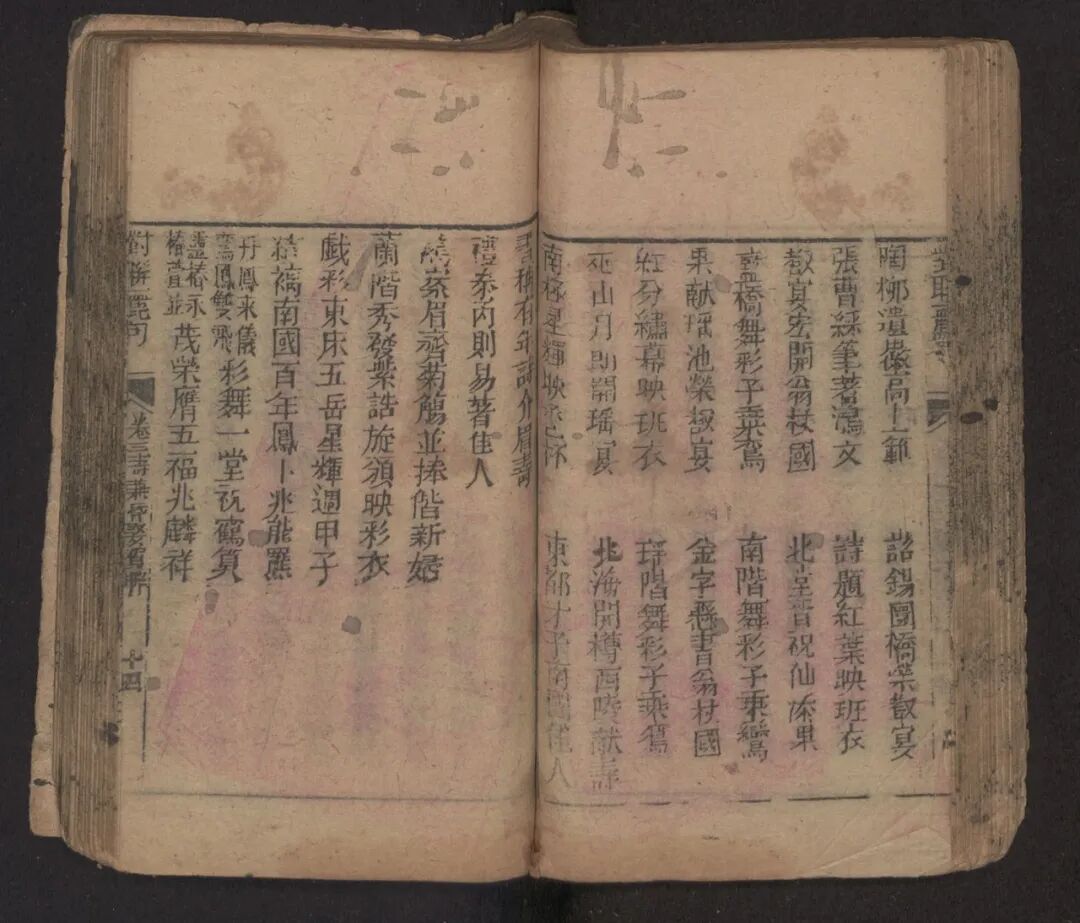 陶柳遺徽高上範
詔錫圜橋榮敬宴
張曹綵筆著鴻文
詩題紅葉映班衣
敬宴宏開翁杖國
北堂晋祝仙添果
藍橋舞彩子乘鸞
南階舞彩子乘鸞
果献瑶池榮敬宴
金字懸書翁杖國
紅分繡幕映班衣
瑶階舞彩子乘鸞
巫山月朗開瑶宴
北海開樽西陵献壽
南極星輝映
東都才子南國佳人
書稱有年詩介眉壽
禮泰內則易著佳人
眉齊菊觴並捧偕新婦
蘭階秀發紫誥旋頒映彩衣
戯彩東床五岳星輝週甲子
南國百年鳳卜兆能羆
丹鳳来儀
鸞鳳雙飛彩舞一堂祝鶴算
靈椿永
椿萱並茂榮膺五福兆麟祥
對聯麗句
卷三壽兼
十四